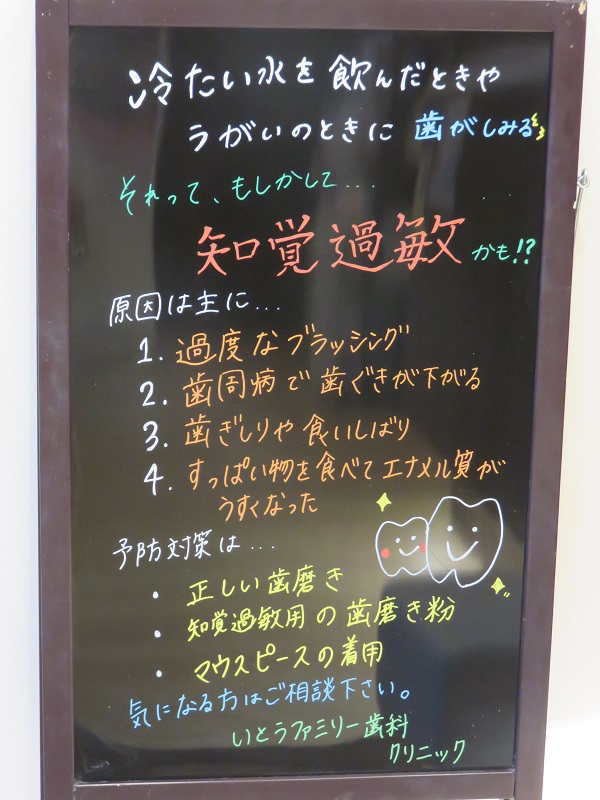 冷たい水を飲んだときや
うがいのときに 歯がしみる
それって、もしかして...
知覚過敏 かも!?
原因は主に...
1. 過度なブラッシング
2. 歯周病で歯ぐきが下がる
3. 歯ぎしりや食いしばり
4. すっぱい物を食べてエナメル質が
うすくなった
予防対策は...
・ 正しい歯磨き
・ 知覚過敏用の歯磨き粉
・ マウスピースの着用
気になる方はご相談下さい。
いとうファミリー歯科
クリニック